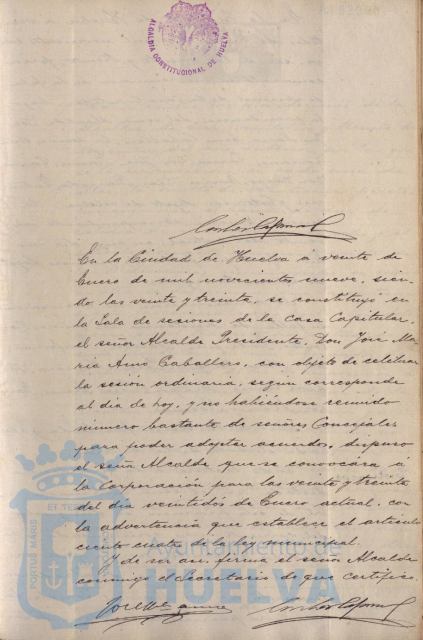 ALCALDIA CONSTITUCIONAL DE HUELVA
En la Ciudad de Huelva á veinte de
Enero de mil novecientos nueve, sien-
do las veinte y treinta, se constituyó en
la Sala de sesiones de la Casa Capitular,
el señor Alcalde Presidente, Don José Ma-
ria Amo Caballero, con objeto de celebrar
la sesión ordinaria, segun corresponde
al dia de hoy, y no habiéndose reunido
número bastante de señores Concejales
para poder adoptar acuerdos, dispuso
el señor Alcalde que se convocára á
la Corporación para las veinte y treinta
del dia veintidós de Enero actual, con
la advertencia que establece el articulo
ciento cuatro de la ley municipal.
Y de ser asi, firma el señor Alcalde
conmigo el Secretario de que certifico.
José Mª Amo
PORTUS MARIS ET TER
Ayuntamiento de
HUELVA